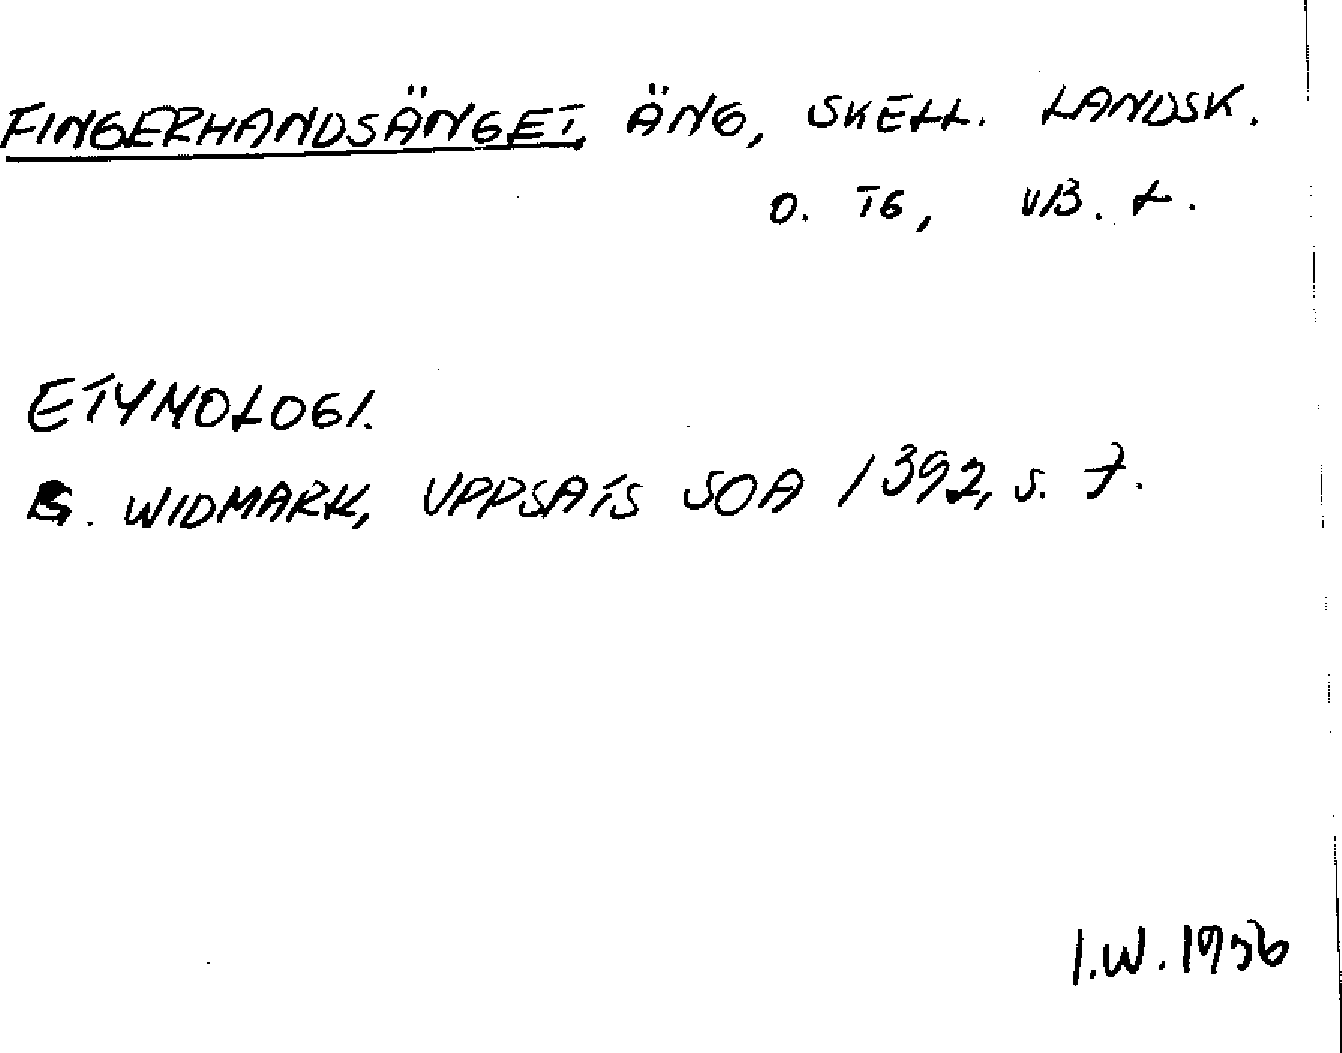 FINGERHANDSÄNGET, ÄNG, SKELL. LANDSK.
O. TG, VB. L.
ETYMOLOGI.
G. WIDMARK, UPPSATS SOA 1392, S. 7.
I.W. 1956